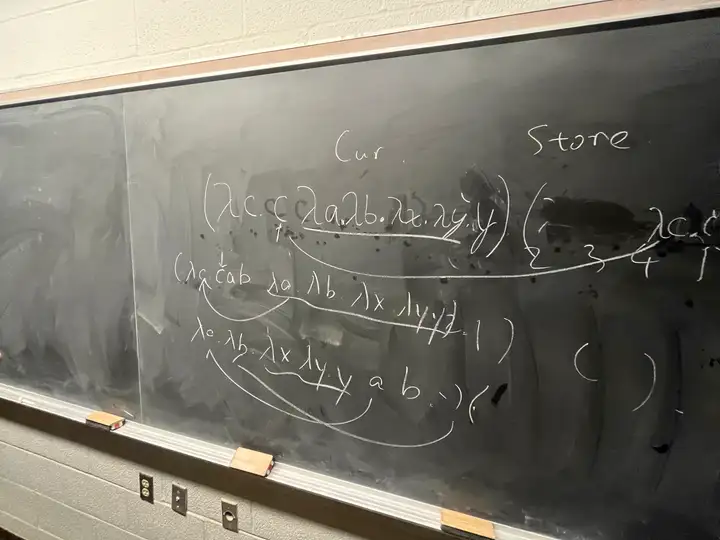 Cur. Store
(λc. c λa.λb.λx.λy.y) ( λc. c
2 3 4
(λa cab λa. λb. λx. λy y ) ( ) .
λa. λb. λx λy. y a b . ) (